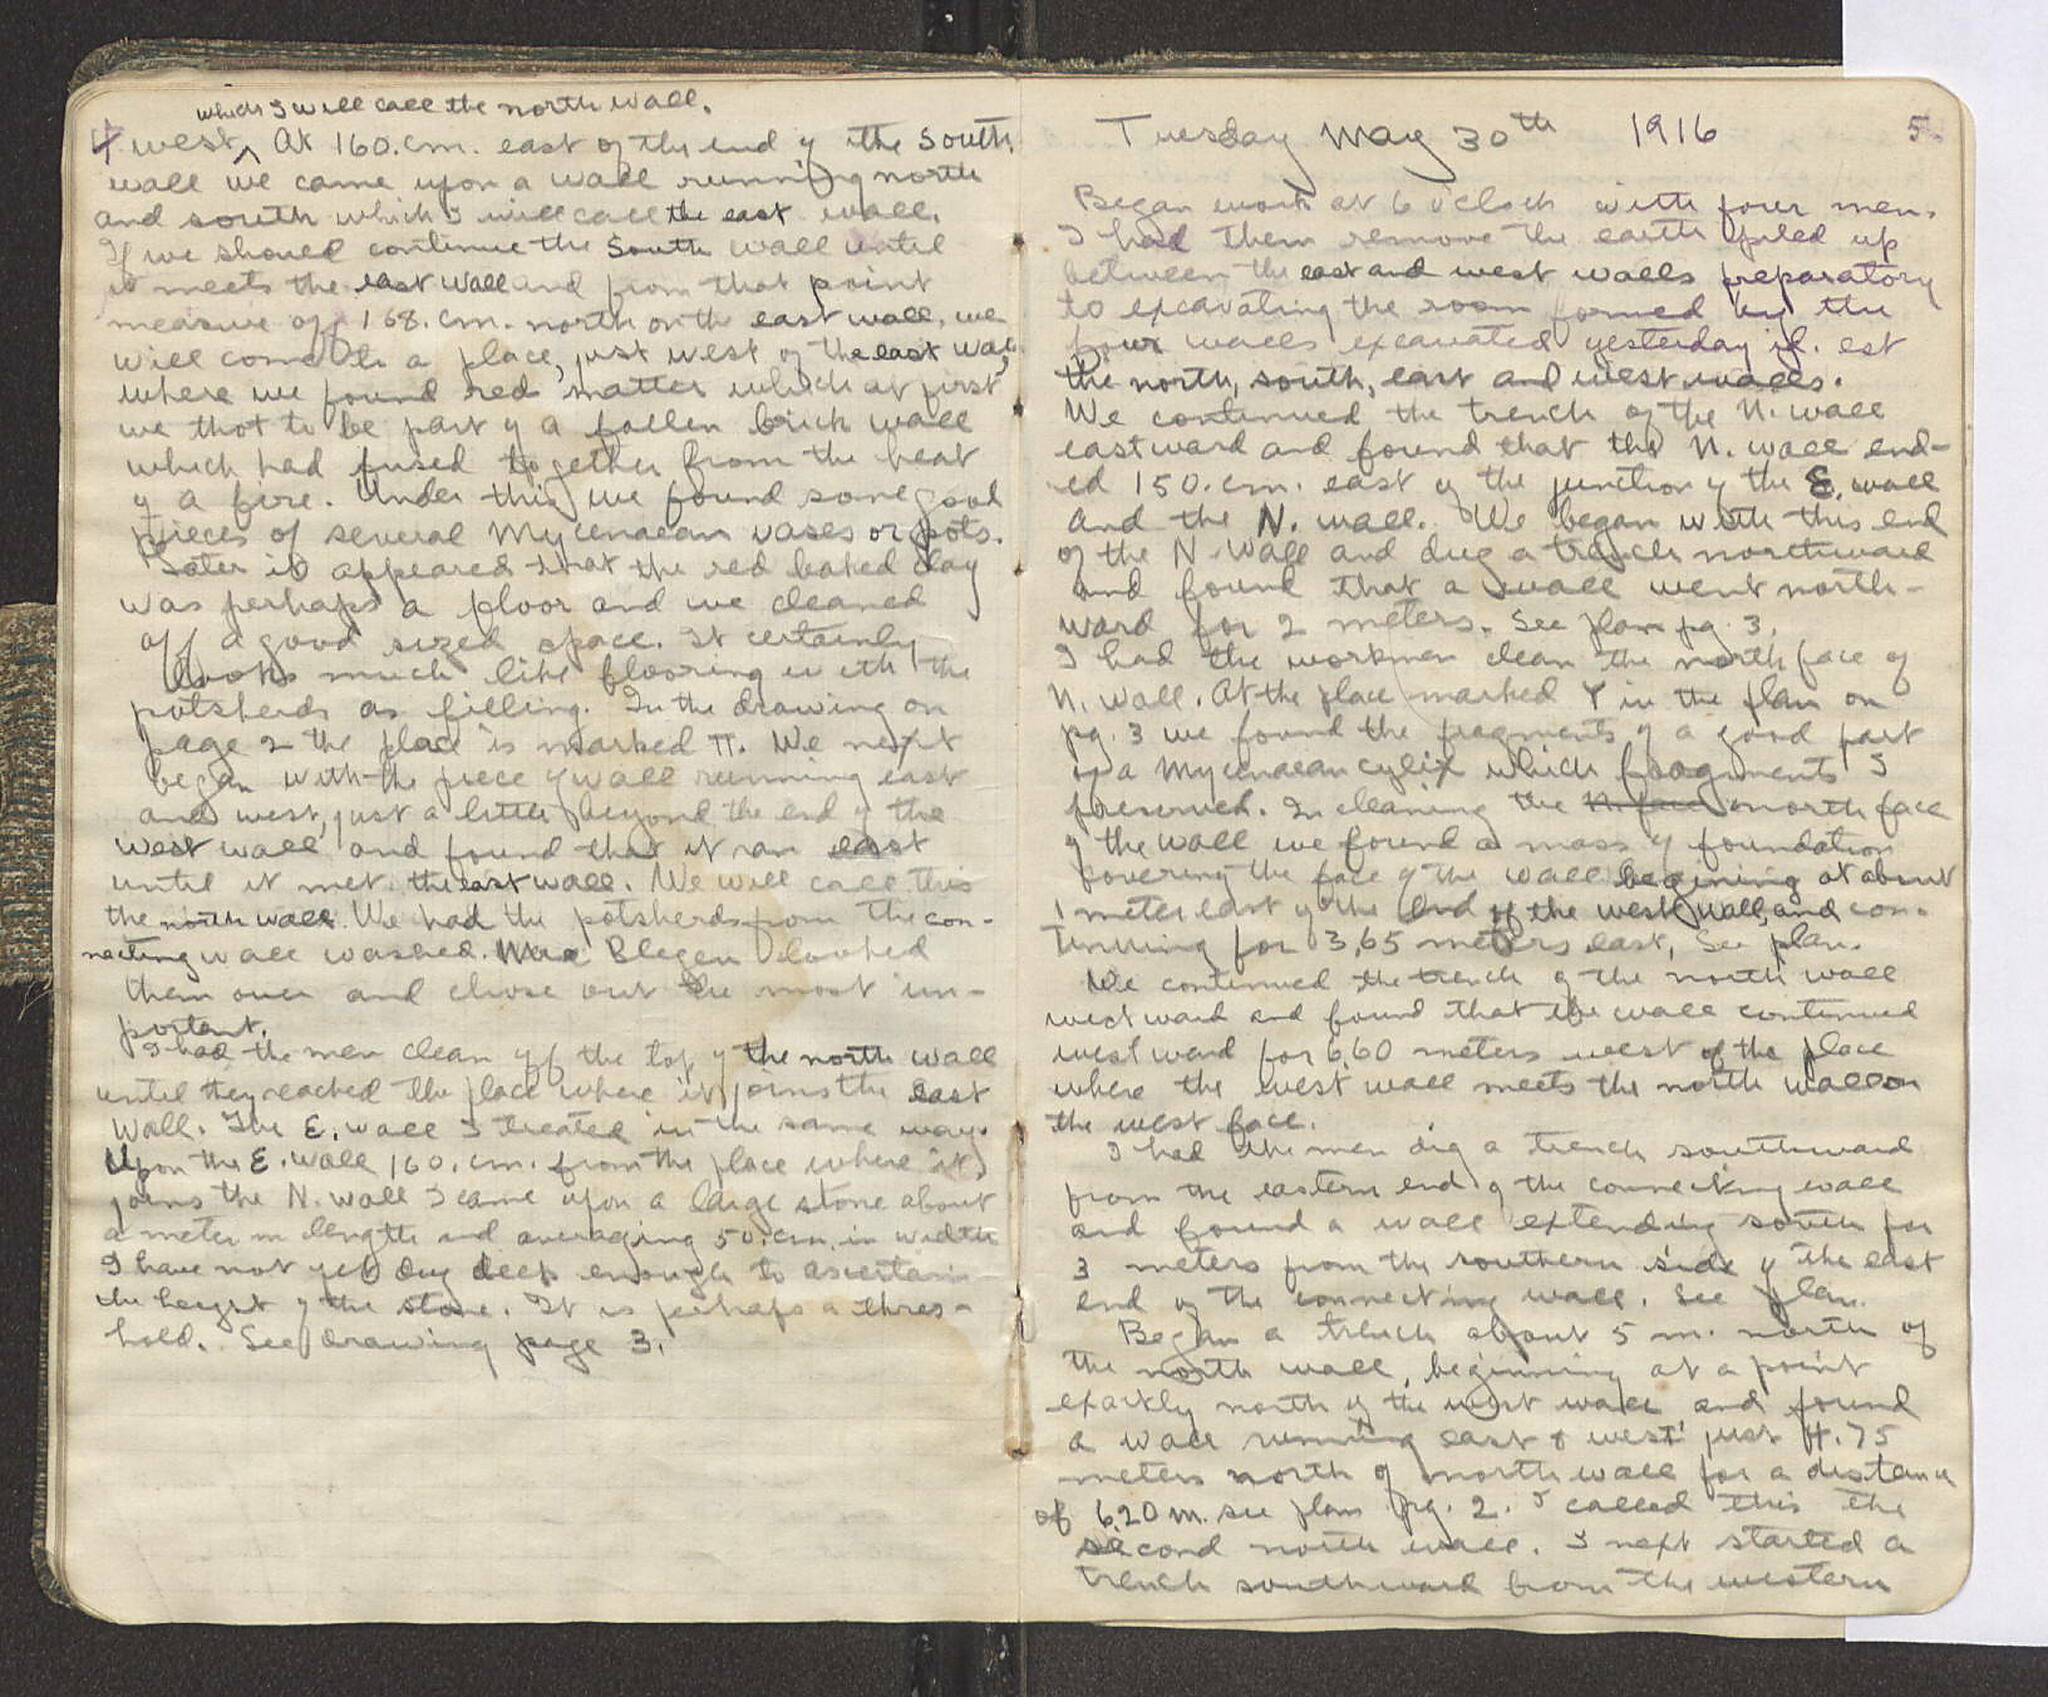 which I will call the north wall.
4 west ^ At 160.cm. east of the end of the South
wall we came upon a wall running north
and south which I will call the east wall.
If we should continue the South wall until
it meets the east wall and from that point
measure off 168. cm. north on the east wall, we
will come to a place, just west of the east wall,
where we found red matter which at first
we thot to be part of a fallen brick wall
which had fused together from the heat
of a fire. Under this we found some good
pieces of several Mycenaean vases or pots.
Later it appeared that the red baked clay
was perhaps a floor and we cleaned
off a good sized space. It certainly
looks much like flooring with the
potsherds as filling. In the drawing on
page 2 the place is marked π. We next
began with the piece of wall running east
and west, just a little beyond the end of the
west wall and found that it ran east
until it met the east wall. We will call this
the north wall. We had the potsherds from the con-
necting wall washed. Blegen looked
them over and chose out the most im-
portant.
I had the men clean off the top of the north wall
until they reached the place where it joins the east
wall. The E. wall I treated in the same way.
Upon the E. wall 160. cm. from the place where it
joins the N. wall I came upon a large stone about
a meter in length and averaging 50. cm. in width
I have not yet dug deep enough to ascertain
the height of the stone. It is perhaps a thres-
hold. See drawing page 3.
Tuesday May 30th 1916 5.
Began work at 6 o'clock with four men.
I had them remove the earth piled up
between the east and west walls preparatory
to excavating the room formed by the
four walls excavated yesterday id. est
the north, south, east and west walls.
We continued the trench of the N. wall
eastward and found that the N. wall end-
ed 150. cm. east of the junction of the E. wall
and the N. wall. We began with this end
of the N. Wall and dug a trench northward
and found that a wall went north-
ward for 2 meters. See plan pg. 3.
I had the workmen clean the north face of
N. wall. At the place marked Y in the plan on
pg. 3 we found the fragments of a good part
of a Mycenaean cylix which fragments I
preserved. In cleaning the N. face north face
of the wall we found a mass of foundation
covering the face of the wall begining at about
1 meter east of the end of the west wall, and con-
tinuing for 3,65 meters east, See plan.
We continued the trench of the north wall
westward and found that the wall continued
westward for 6,60 meters west of the place
where the west wall meets the north wall on
the west face.
I had the men dig a trench southward
from the eastern end of the connecting wall
and found a wall extending south for
3 meters from the southern side of the east
end of the connecting wall. See plan.
Began a trench about 5 m. north of
the north wall, beginning at a point
exactly north of the west wall and found
a wall running east & west just 4.75
meters north of north wall for a distance
of 6,20 m. see plan pg. 2. I called this the
second north wall. I next started a
trench southward from the western